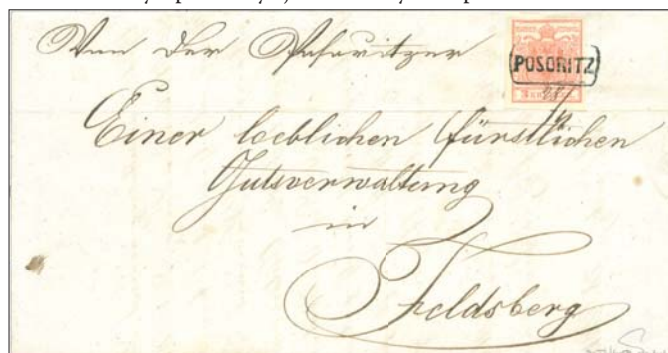 Von der Posoritzer
POSORITZ
Einer loeblichen fürstlichen
Gutsverwaltung
in
Feldsberg